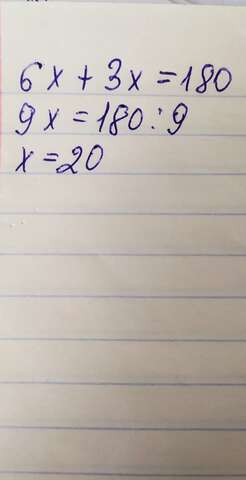 6x + 3x = 180
9x = 180 : 9
x = 20